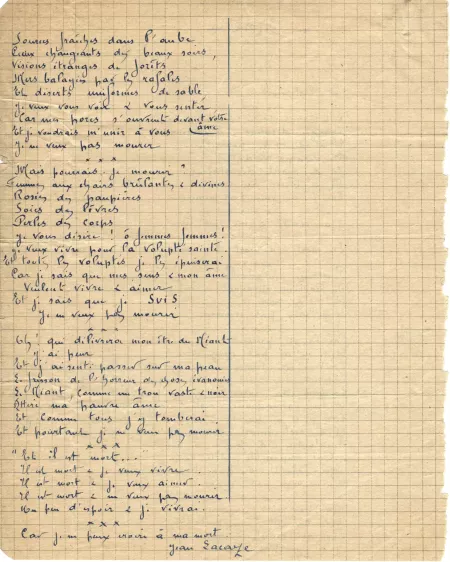 Sources fraîches dans l'aube
Cieux changeants des beaux soirs,
Visions étranges de forêts
Mers balayées par les rafales
Et déserts uniformes de sable
Je veux vous voir & vous sentir
Car mes pores s'ouvrent devant votre
Et je voudrais m'unir à vous âme
Je ne veux pas mourir
* * *
Mais pourrais-je mourir"
Femmes aux chairs brûlantes & divines
Roses des paupières
Soies des lèvres
Perles des corps
Je vous désire! ô femmes femmes!
Je veux vivre pour la volupté sainte.
Et toutes les voluptés je les épuiserai
Car je sais que mes sens & mon âme
Veulent vivre & aimer
Et je sais que je SUIS
Je ne veux pas mourir
* * *
Eh! qui délivrera mon être du Néant
J'ai peur
Et j'ai senti passer sur ma peau
Le frisson de l'horreur des choses
Le Néant, comme un trou vaste & noir
Attire ma pauvre âme
Et comme tous j'y tomberai
Et pourtant je ne veux pas mourir
* * *
"Et il est mort...
Il est mort & je veux vivre.
Il est mort & je veux aimer.
Il est mort & ne veux pas mourir
Un peu d'espoir & je vivrai.
* * *
Car je ne peux croire à ma mort
Jean Lacaze